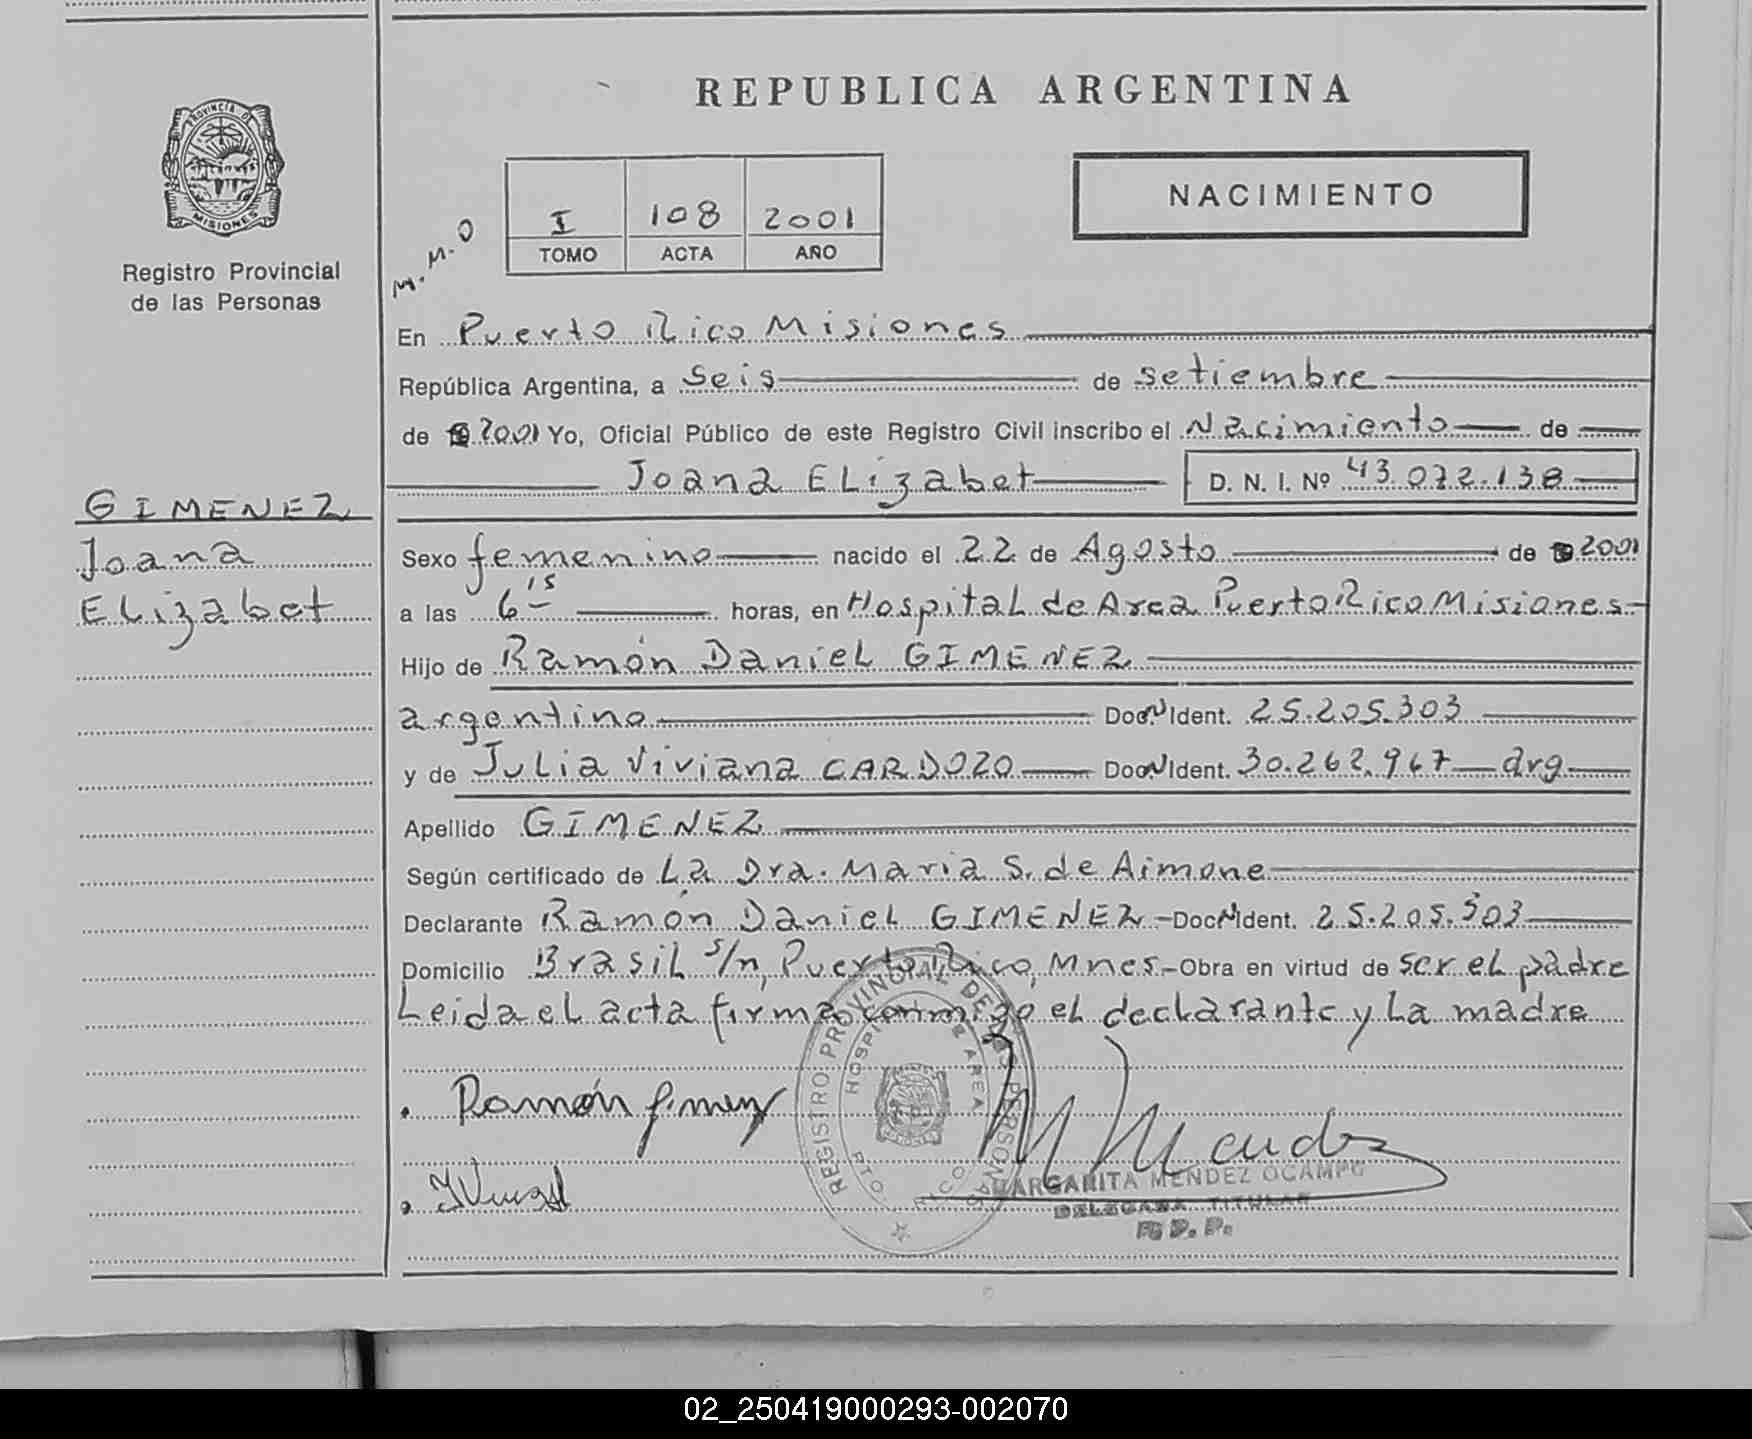 REPUBLICA ARGENTINA
PROVINCIA DE
MISIONES
Registro Provincial
de las Personas
NACIMIENTO
I 108 2001
TOMO ACTA AÑO
M.M.O
En Puerto Rico Misiones
República Argentina, a Seis de setiembre
de 2001 Yo, Oficial Público de este Registro Civil inscribo el Nacimiento de
Joana ELizabet D. N. I. Nº 43.072.138
GIMENEZ
Joana
ELizabet
Sexo femenino nacido el 22 de Agosto de 2001
a las 6 15 horas, en HospitaL de Area Puerto Rico Misiones
Hijo de Ramón DanieL GIMENEZ
argentino Doc. N Ident. 25.205.303
y de JuLia Viviana CARDOZO Doc. N Ident. 30.262.967 arg
Apellido GIMENEZ
Según certificado de La Dra. Maria S. de Aimone
Declarante Ramón DanieL GIMENEZ Doc N Ident. 25.205.303
Domicilio BrasiL s/n, Puerto Rico, Mnes. Obra en virtud de ser eL padre
Leida eL acta firma conmigo eL decLarante y La madre
Ramón Gimenez
REGISTRO PROVINCIAL DE LAS PERSONAS
HOSPITAL DE AREA
PTO. RICO
M Mendez
MARGARITA MENDEZ OCAMPO
DELEGADA TITULAR
R. P. P.
02_250419000293-002070